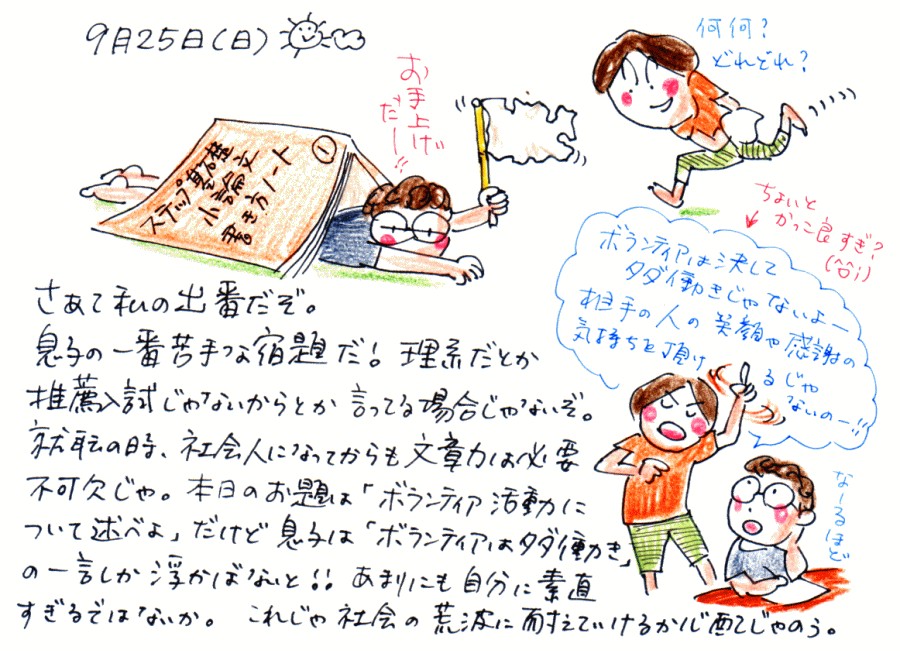 9月25日(日)
お手上げ
だー!!
何何?
どれどれ?
ステップ式
小論文
書き方ノート
①
ちょいと
かっこ良すぎ?
ボランティアは決して
タダ働きじゃないよー
相手の人の笑顔や感謝の
気持ちを頂けるじゃ
ないのー!!
なーるほど
さあて私の出番だぞ。
息子の一番苦手な宿題だ! 理系だとか
推薦入試じゃないからとか言ってる場合じゃないぞ。
就職の時、社会人になってからも文章力は必要
不可欠じゃ。本日のお題は「ボランティア活動に
ついて述べよ」だけど息子は「ボランティアはタダ働き」
の一言しか浮かばないと!! あまりにも自分に素直
すぎるではないか。 これじゃ社会の荒波に耐えていけるか心配じゃのう。